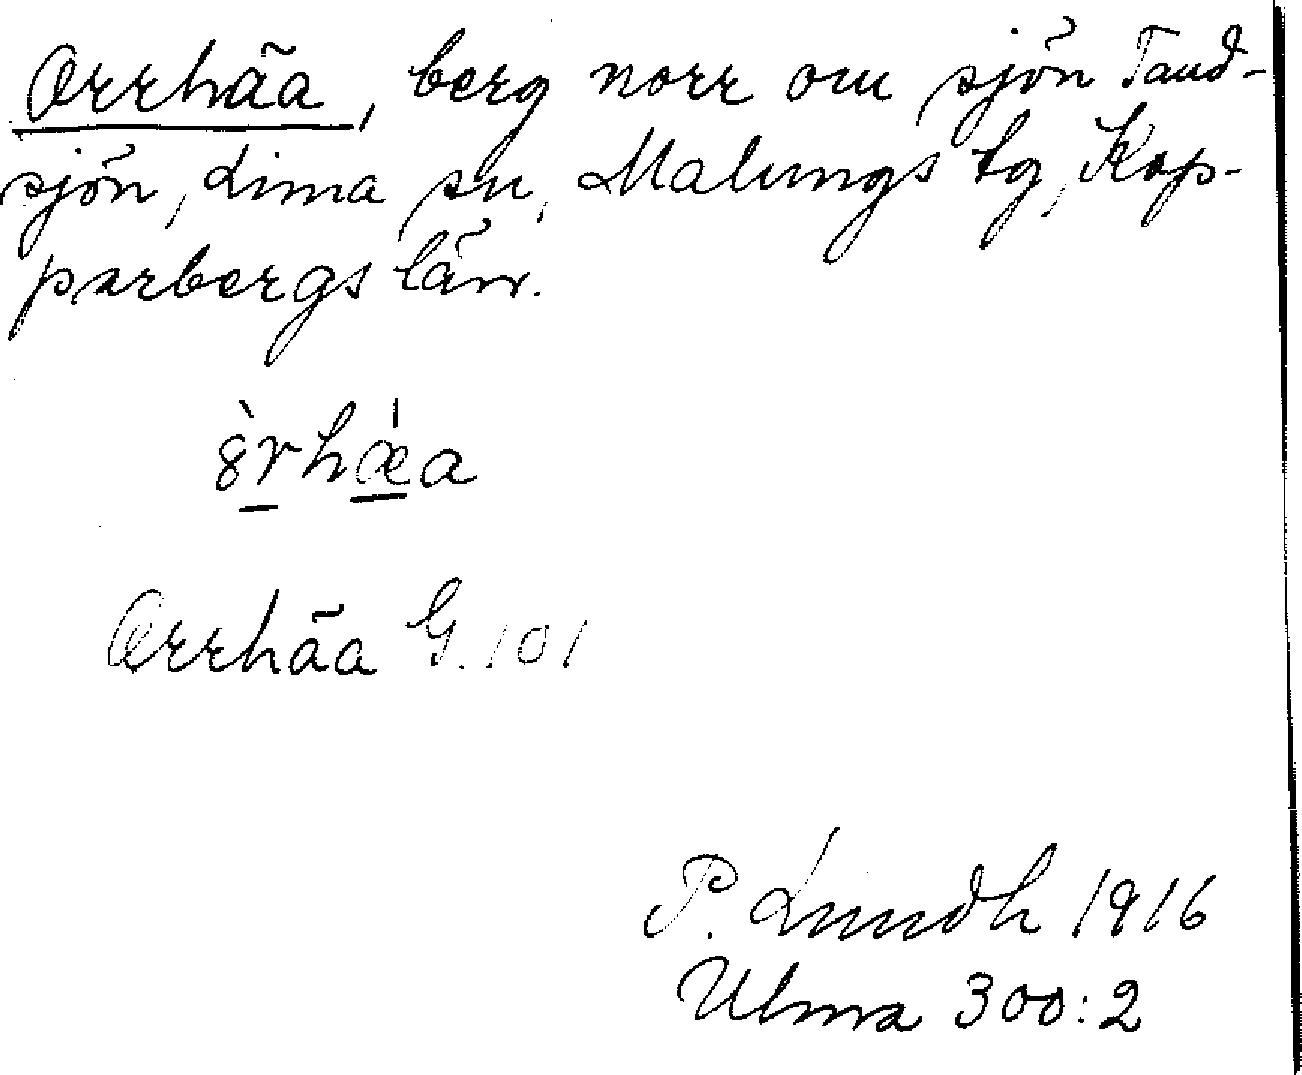 Orrhäa, berg norr om sjön Tand-
sjön, Lima sn, Malungs tg, Kop-
parbergs län.
ȣ̀rhǽa
Orrhäa G. 101
P. Lundh 1916
Ulma 300:2